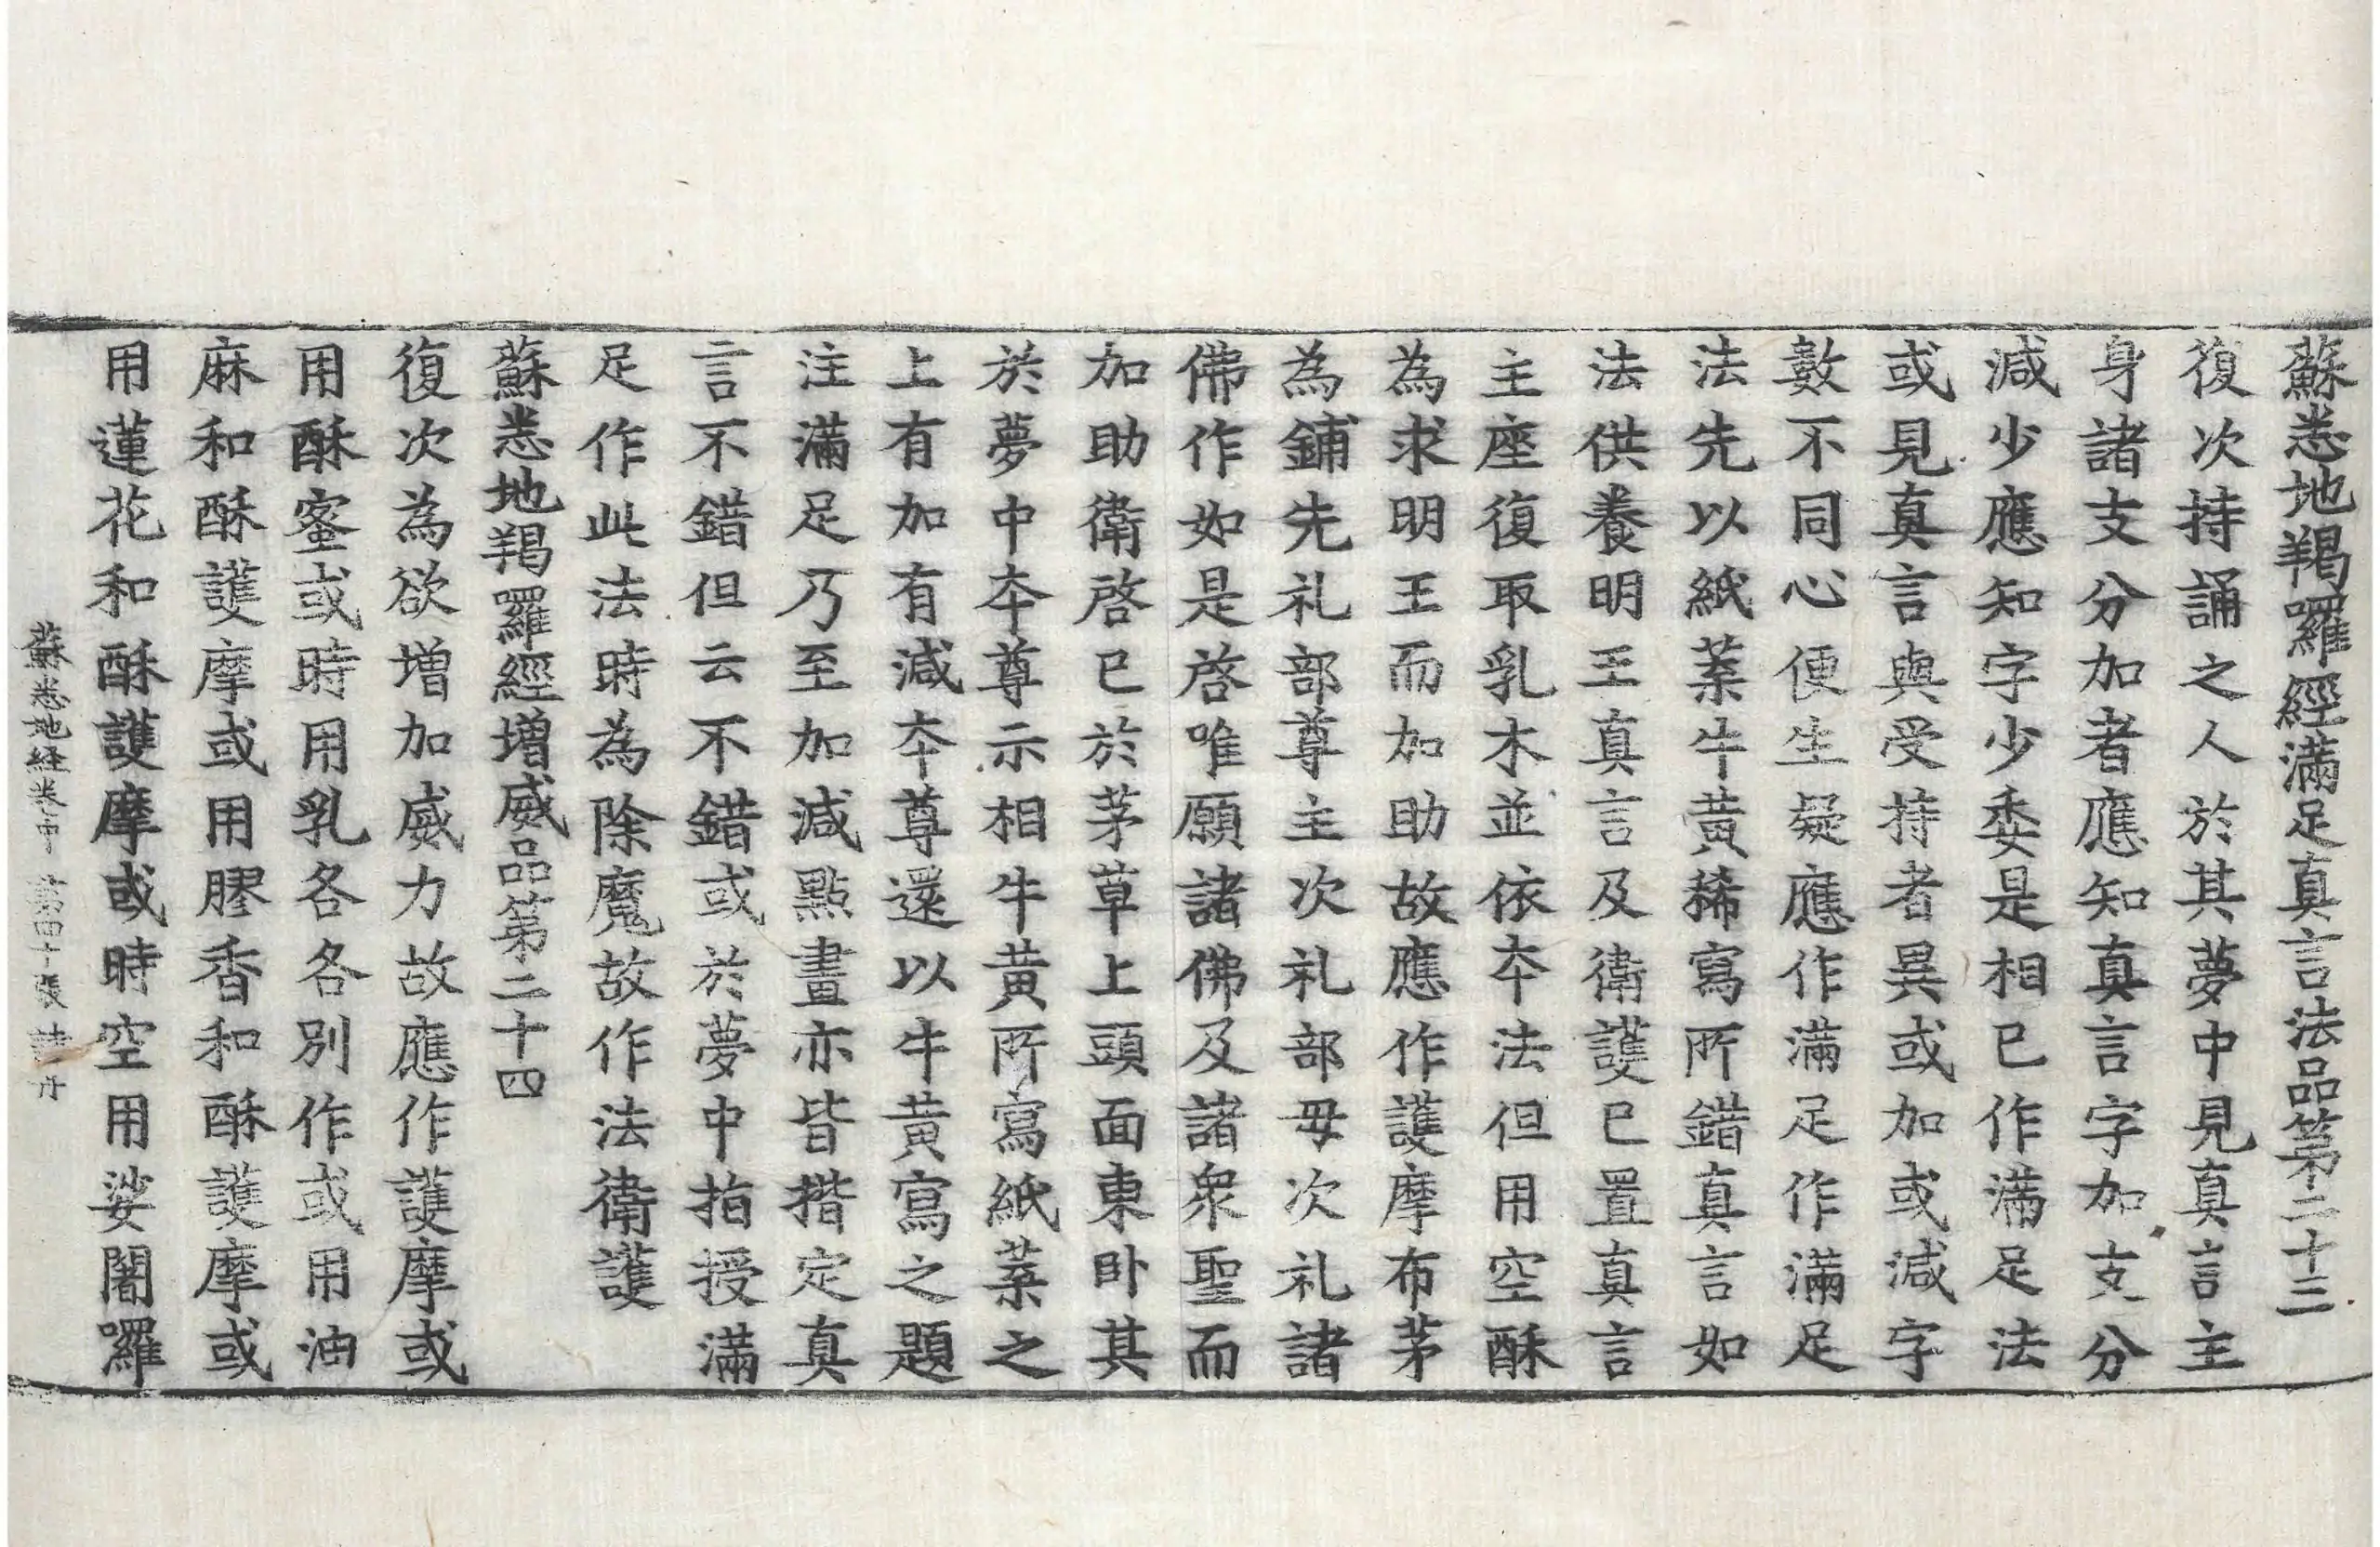 蘇悉地羯囉經滿足真言法品第二十三
復次持誦之人於其夢中見真言主
身諸支分加者應知真言字加支分
減少應知字少委是相已作滿足法
或見真言與受持者異或加或減字
數不同心便生疑應作滿足作滿足
法先以紙葉牛黃稀寫所錯真言如
法供養明王真言及衛護已置真言
主座復取乳木並依本法但用空酥
為求明王而加助故應作護摩布茅
為鋪先礼部尊主次礼部母次礼諸
佛作如是啓唯願諸佛及諸衆聖而
加助衛啓已於茅草上頭面東卧其
於夢中夲尊示相牛黃所寫紙葉之
上有加有減夲尊還以牛黃寫之題
注滿足乃至加減點畫亦皆揩定真
言不錯但云不錯或於夢中指授滿
足作此法時為除魔故作法衛護
蘇悉地羯囉經增威品第二十四
復次為欲增加威力故應作護摩或
用酥蜜或時用乳各各別作或用油
麻和酥護摩或用膠香和酥護摩或
用蓮花和酥護摩或時空用娑闍囉
蘇悉地経卷中 第四十張 詩 丹